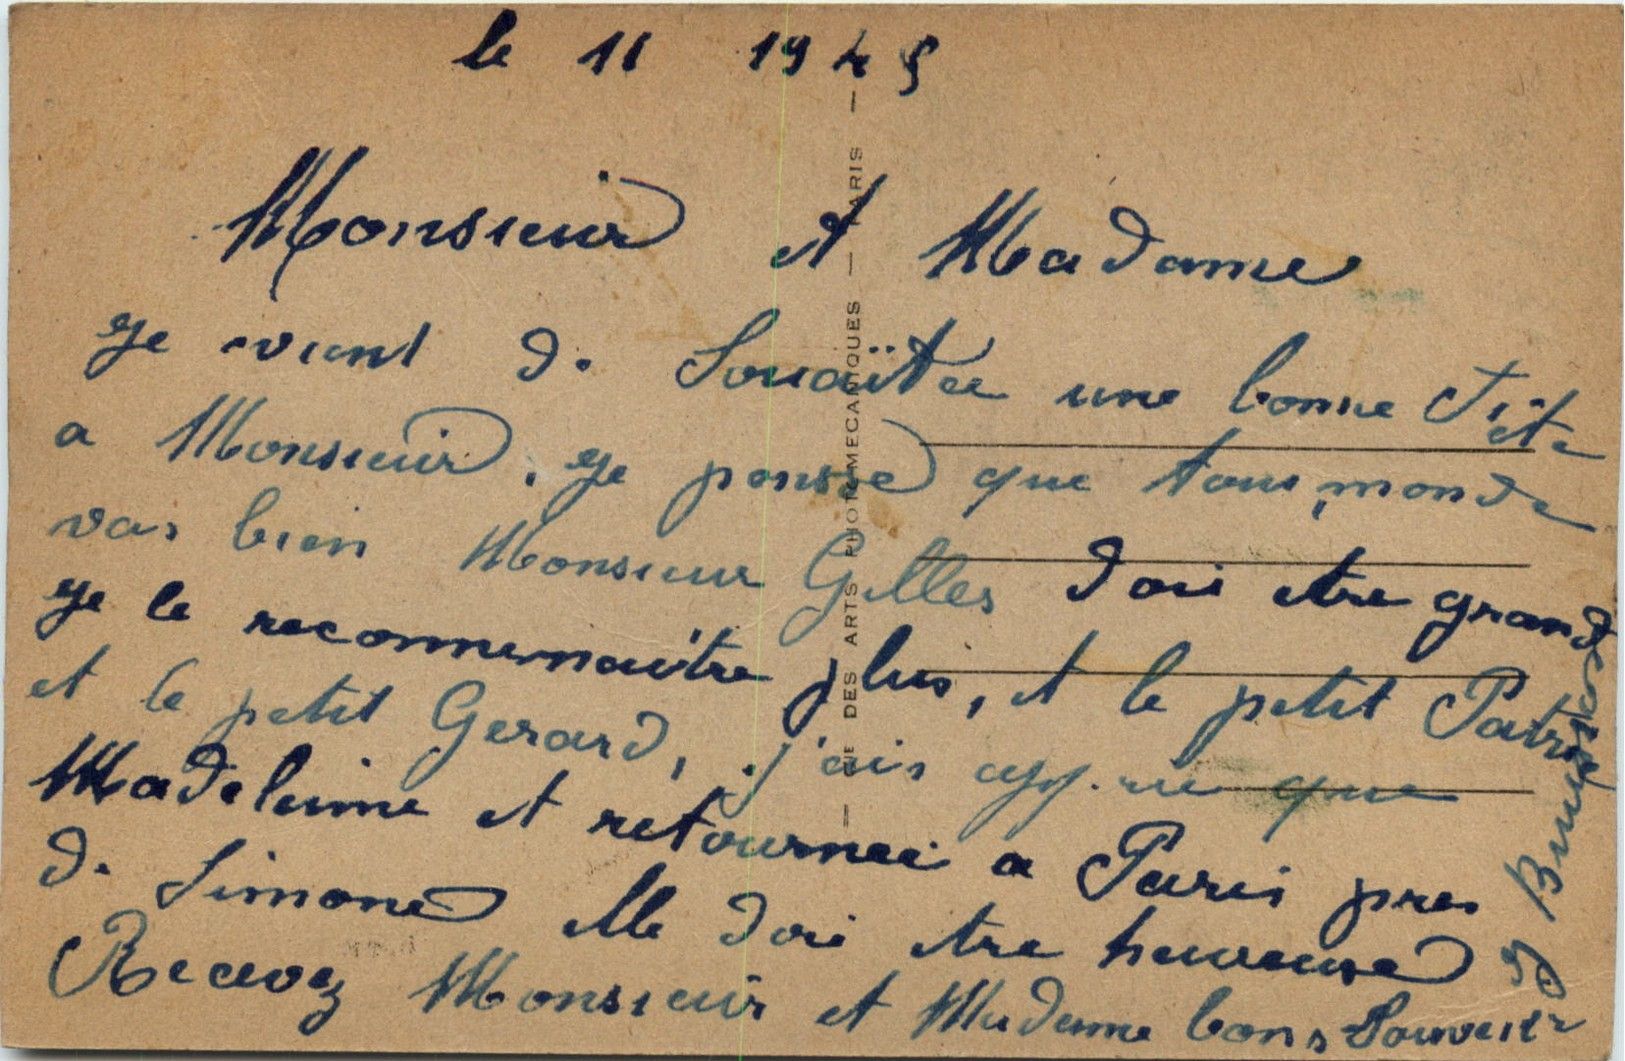 le 11 1945
Monsieur et Madame
Je vient de Souaïter une bonne Fête
a Monsieur, Je pense que tous monde
vas bien Monsieur Gilles doit etre grand
Je le reconnenaitre plus, et le petit
et le petit Gerard, j'ais apprie que
Madeleine et retournee a Paris pres
de Simone elle doit etre heureuse
Recevez Monsieur et Madame bons Souvenir
CIE DES ARTS PHOTOMECANIQUES — PARIS —